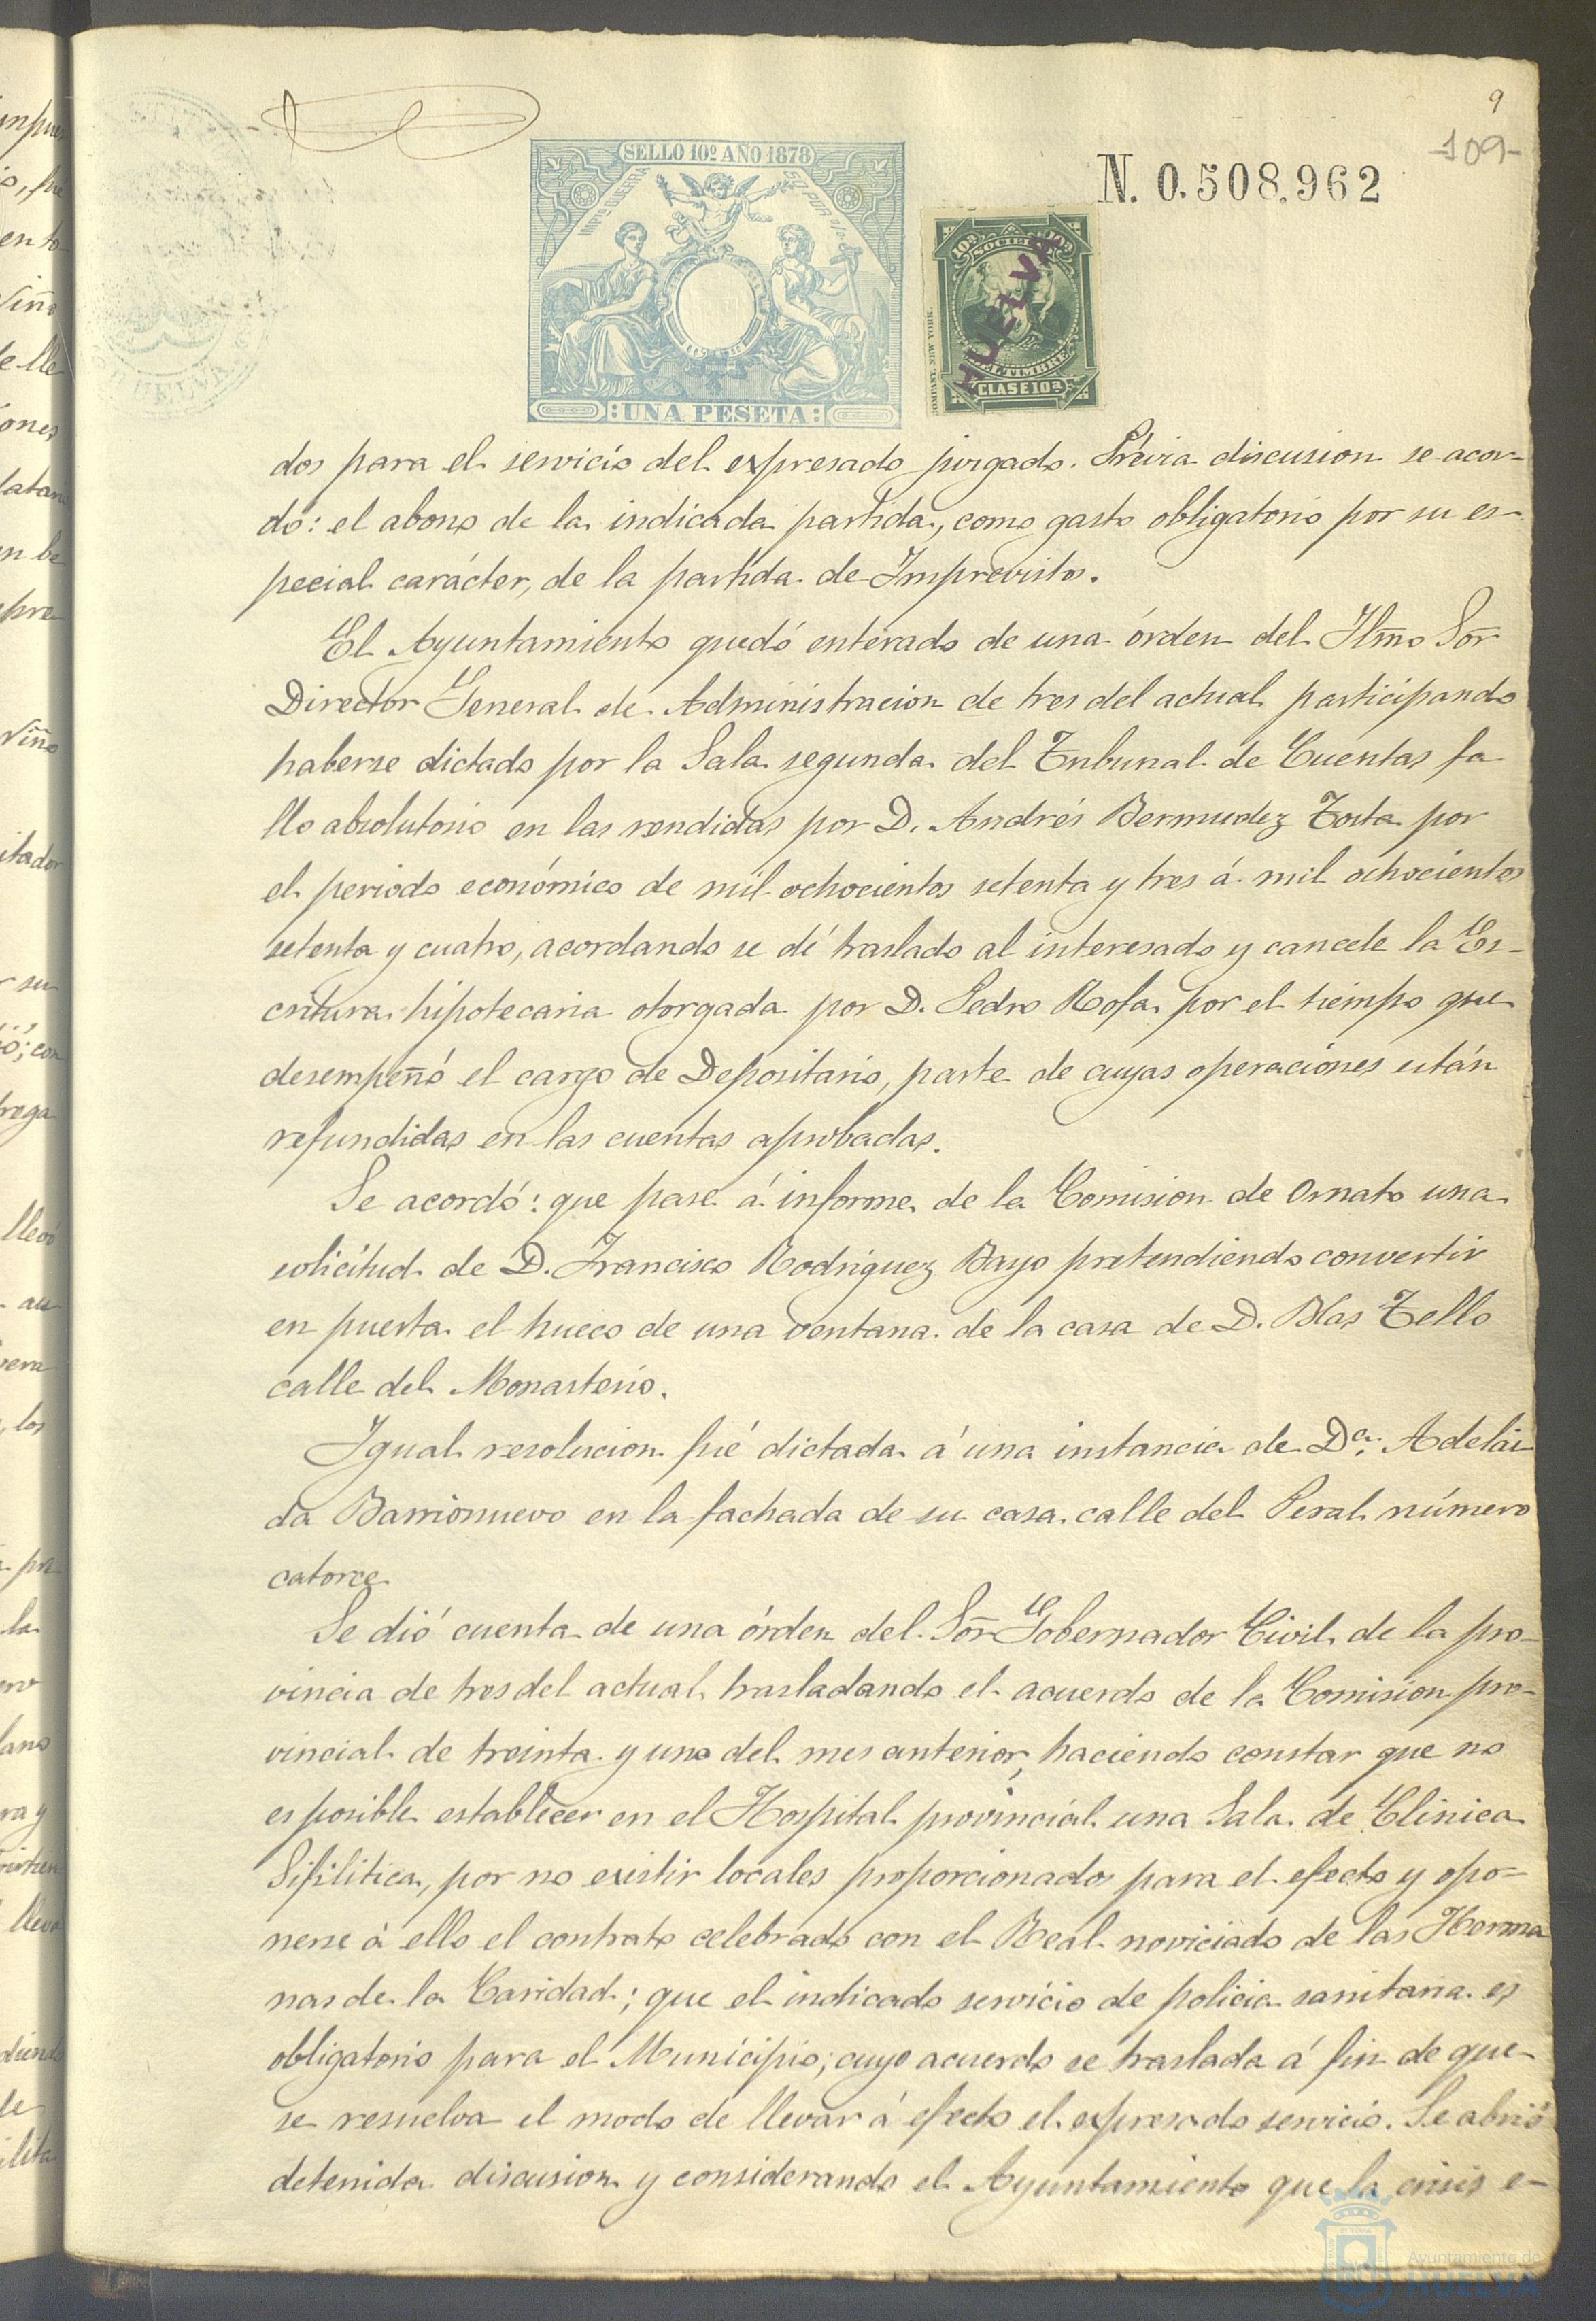 9
-109-
SELLO 10º AÑO 1878
N. 0.508.962
10ª SOCIEDAD 10ª
HUELVA
DEL TIMBRE
CLASE 10ª
COMPANY. NEW YORK.
UNA PESETA
dos para el servicio del expresado juzgado. Prévia discusion se acor-
dó: el abono de la indicada partida, como gasto obligatorio por su es-
pecial carácter, de la partida de Imprevistos.
El Ayuntamiento quedó enterado de una órden del Iltmo Sor
Director General de Administracion de tres del actual participando
haberse dictado por la Sala segunda del Tribunal de Cuentas fa
llo absolutorio en las rendidas por D. Andrés Bermudez Tosta por
el periodo económico de mil ochocientos setenta y tres á mil ochocientos
setenta y cuatro, acordando se dé traslado al interesado y cancele la Es-
critura hipotecaria otorgada por D. Pedro Rofa por el tiempo que
desempeñó el cargo de Depositario, parte de cuyas operaciones están
refundidas en las cuentas aprobadas.
Se acordó: que pase á informe de la Comision de Ornato una
solicitud de D. Francisco Rodriguez Bayo pretendiendo convertir
en puerta el hueco de una ventana de la casa de D. Blas Tello
calle del Monasterio.
Igual resolucion fué dictada á una instancia de Dª. Adelai-
da Barrionuevo en la fachada de su casa calle del Peral número
catorce
Se dió cuenta de una órden del Sor Gobernador Civil de la pro-
vincia de tres del actual trasladando el acuerdo de la Comision pro-
vincial de treinta y uno del mes anterior, haciendo constar que no
es posible establecer en el Hospital provincial una Sala de Clinica
Sifilitica, por no existir locales proporcionados para el efecto y opo-
nerse á ello el contrato celebrado con el Real noviciado de las Herma
nas de la Caridad; que el indicado servicio de policia sanitaria es
obligatorio para el Municipio; cuyo acuerdo se traslada á fin de que
se resuelva el modo de llevar á efecto el expresado servicio. Se abrió
detenida discusion y considerando el Ayuntamiento que la crisis e-
Ayuntamiento de
HUELVA